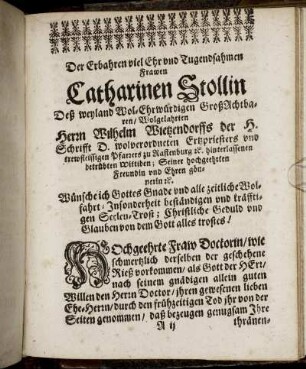 Der Erbahren viel Ehr vnd Tugendsahmen
Frawen
Catharinen Stollin
Deß weyland Wol-Ehrwürdigen GroßAchtba-
ren/ Wolgelahrten
Herrn Wilhelm Wietzendorffs der H.
Schrifft D. wolverordneten Ertzpriesters vnd
trewfleissigen Pfarrers zu Rastenburg ꝛc. hinterlassenen
betrübten Wittiben; Seiner hochgeehrten
Freundin vnd Ehren gön-
nerin ꝛc.
Wünsche ich Gottes Gnade vnd alle zeitliche Wol-
fahrt: Insonderheit beständigen vnd kräffti-
gen Seelen-Trost; Christliche Geduld vnd
Glauben von dem Gott alles trostes!
HOchgeehrte Fraw Doctorin/ wie
schmertzlich derselben der geschehene
Rieß vorkommen/ als Gott der HErr/
nach seinem gnädigen allein guten
Willen den Herrn Doctor/ jhren gewesenen lieben
Ehe-Herrn/ durch den frühzeitigen Tod jhr von der
Seiten genommen/ daß bezeugen genugsam Jhre
A ij
thränen/